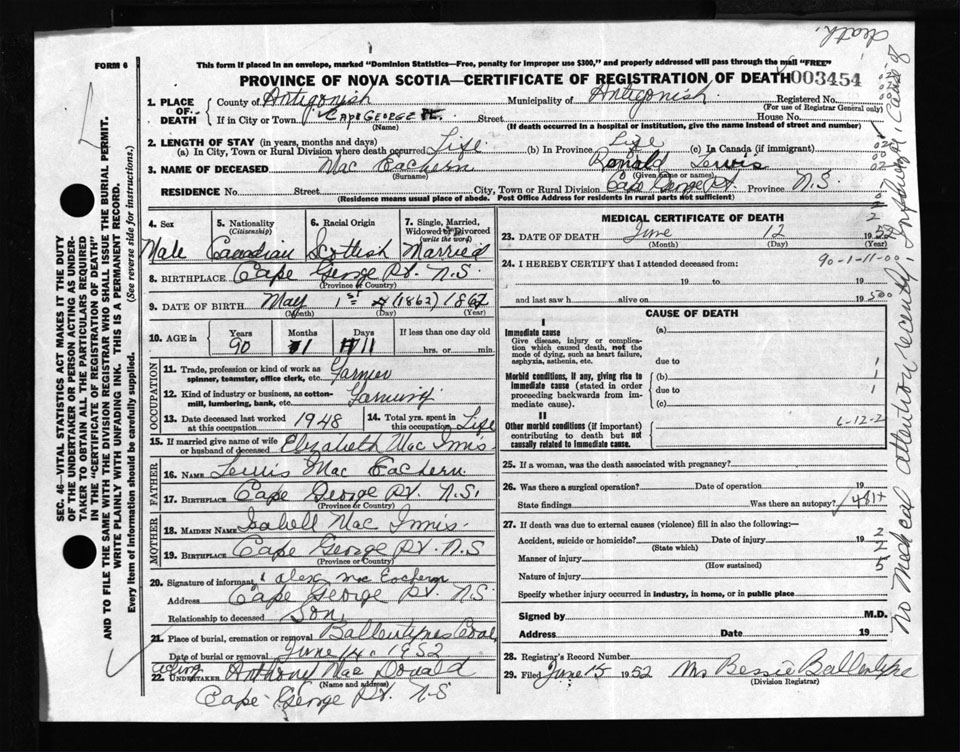 FORM 6
This form if placed in an envelope, marked "Dominion Statistics—Free, penalty for improper use $300," and properly addressed will pass through the mail "FREE"
PROVINCE OF NOVA SCOTIA—CERTIFICATE OF REGISTRATION OF DEATH 003454
1. PLACE OF DEATH
County of Antigonish Municipality of Antigonish Registered No.
(For use of Registrar General only)
If in City or Town Cape George Pt. Street House No.
(Name) (If death occurred in a hospital or institution, give the name instead of street and number)
2. LENGTH OF STAY (in years, months and days)
(a) In City, Town or Rural Division where death occurred Life (b) In Province Life (c) In Canada (if immigrant)
3. NAME OF DECEASED Mac Eachern Ronald Lewis
(Surname) (Given name or names)
RESIDENCE No. Street City, Town or Rural Division Cape George Pt. Province N.S.
(Residence means usual place of abode. Post Office Address for residents in rural parts not sufficient)
4. Sex 5. Nationality (Citizenship) 6. Racial Origin 7. Single, Married, Widowed or Divorced (write the word)
Male Canadian Scottish Married
8. BIRTHPLACE Cape George Pt. N.S.
(Province or Country)
9. DATE OF BIRTH May 1st (1862) 1862
(Month) (Day) (Year)
10. AGE in Years Months Days If less than one day old
90 1 11 hrs. or min.
OCCUPATION
11. Trade, profession or kind of work as spinner, teamster, office clerk, etc. Farmer
12. Kind of industry or business, as cotton-mill, lumbering, bank, etc. Farming
13. Date deceased last worked at this occupation 1948 14. Total yrs. spent in this occupation Life
15. If married give name of wife or husband of deceased Elizabeth Mac Innis
FATHER
16. NAME Lewis Mac Eachern
17. BIRTHPLACE Cape George Pt. N.S.
(Province or Country)
MOTHER
18. MAIDEN NAME Isabell Mac Innis
19. BIRTHPLACE Cape George Pt. N.S
(Province or Country)
20. Signature of informant Alex Mac Eachern
Address Cape George Pt. N.S.
Relationship to deceased Son
21. Place of burial, cremation or removal Ballentynes Cove
Date of burial or removal June 14. 1952
acting
22. UNDERTAKER Anthony Mac Donald
(Name and address)
Cape George Pt. N-S
MEDICAL CERTIFICATE OF DEATH
23. DATE OF DEATH June 12 1952
(Month) (Day) (Year)
24. I HEREBY CERTIFY that I attended deceased from: 90-1-11-00
19 to 19
and last saw h alive on 19
CAUSE OF DEATH
I
Immediate cause (a)
Give disease, injury or complication which caused death, not the mode of dying, such as heart failure, asphyxia, asthenia, etc.
due to
Morbid conditions, if any, giving rise to immediate cause (stated in order proceeding backwards from immediate cause).
(b)
due to
(c)
II
Other morbid conditions (if important) contributing to death but not causally related to immediate cause.
6-12-2
25. If a woman, was the death associated with pregnancy?
26. Was there a surgical operation? Date of operation 19
State findings Was there an autopsy?
481+
27. If death was due to external causes (violence) fill in also the following:—
Accident, suicide or homicide? Date of injury 19
(State which)
Manner of injury
(How sustained)
Nature of injury
Specify whether injury occurred in industry, in home, or in public place
Signed by M.D.
Address Date 19
28. Registrar's Record Number
29. Filed June 15 1952 Mrs Bessie Ballentyne
(Division Registrar)
SEC. 46—VITAL STATISTICS ACT MAKES IT THE DUTY
OF THE UNDERTAKER OR PERSON ACTING AS UNDER-
TAKER TO OBTAIN ALL THE PARTICULARS REQUIRED
IN THE "CERTIFICATE OF REGISTRATION OF DEATH"
AND TO FILE THE SAME WITH THE DIVISION REGISTRAR WHO SHALL ISSUE THE BURIAL PERMIT.
WRITE PLAINLY WITH UNFADING INK. THIS IS A PERMANENT RECORD.
Every item of information should be carefully supplied. (See reverse side for instructions.)
No Medical attention recently, Influenza, Cause of
death.